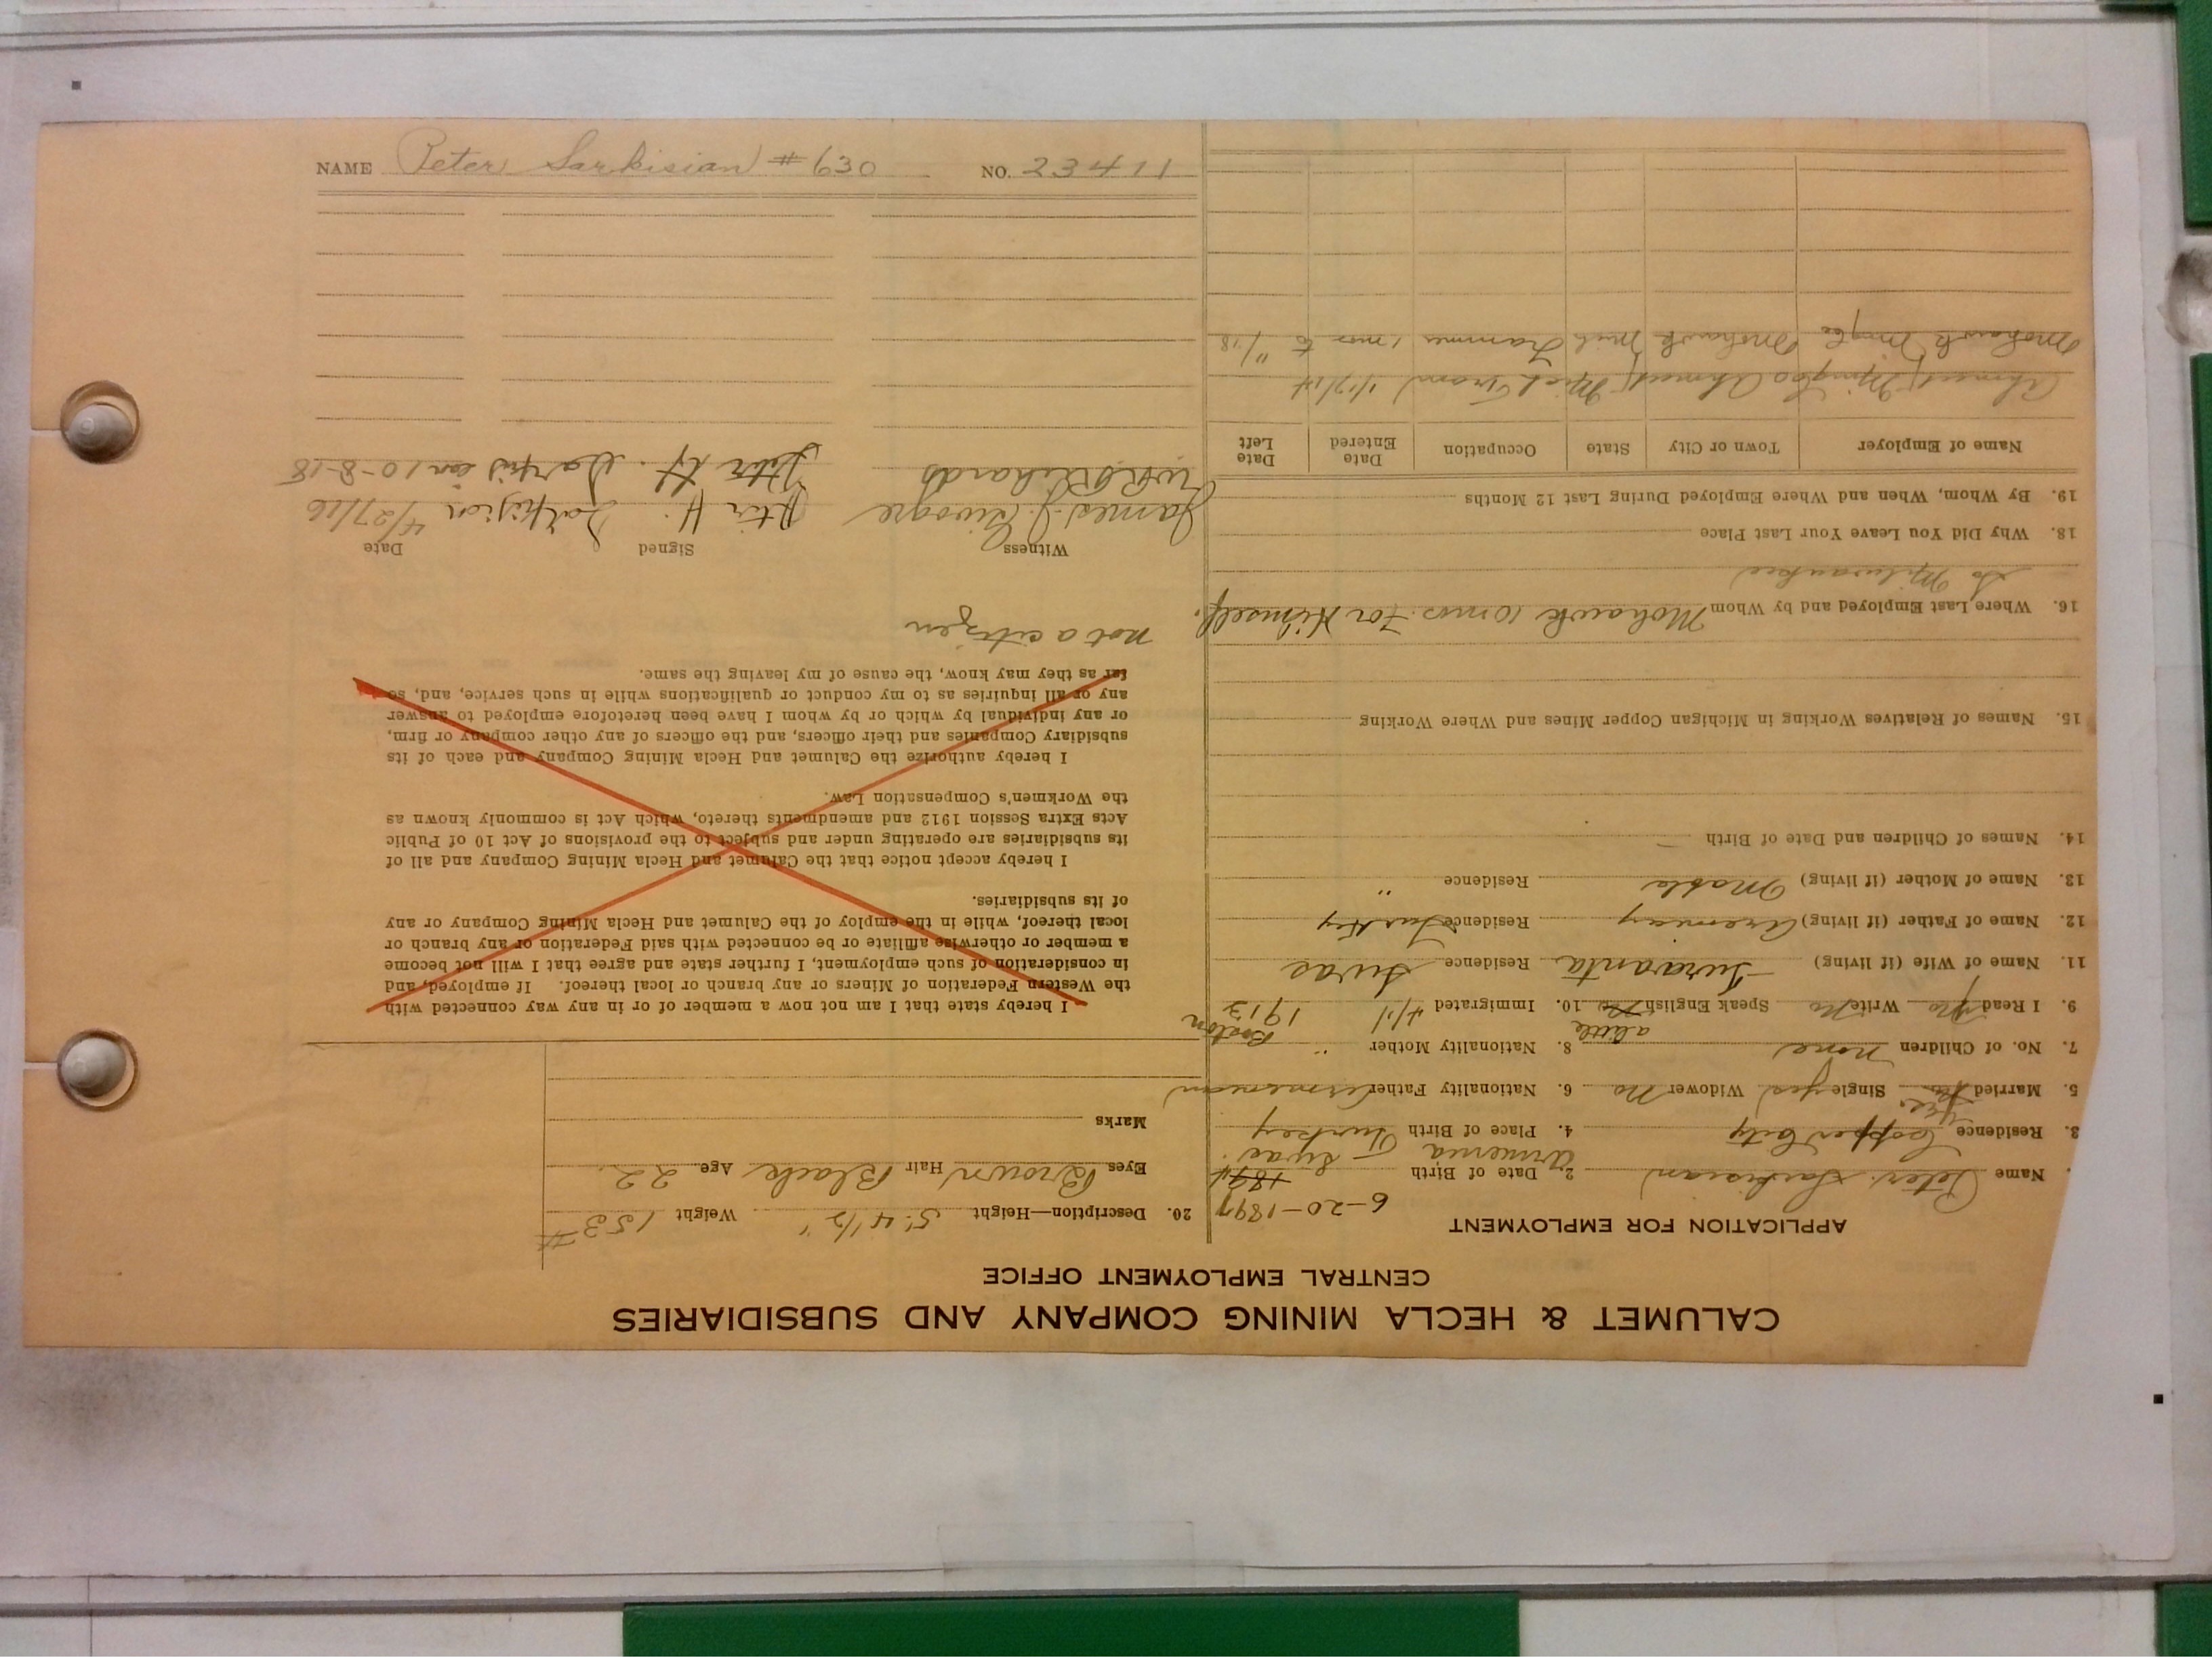 CALUMET & HECLA MINING COMPANY AND SUBSIDIARIES
CENTRAL EMPLOYMENT OFFICE
APPLICATION FOR EMPLOYMENT
6-20-1897
Name Peter Sarkisian 2. Date of Birth 1894
Armenia Sivas
3. Residence Copper City 4. Place of Birth Turkey
yes
5. Married Single yes Widower No 6. Nationality Father Armenian
7. No. of Children none 8. Nationality Mother "
a little Boston
9. I Read No Write No Speak English No 10. Immigrated 4/1/ 1913
11. Name of Wife (if living) Turavanta Residence Sivas
12. Name of Father (if living) Residence Turkey
13. Name of Mother (if living) Residence "
14. Names of Children and Date of Birth
15. Names of Relatives Working in Michigan Copper Mines and Where Working
16. Where Last Employed and by Whom Mohawk 10 mos. For Himself.
to Milwaukee
18. Why Did You Leave Your Last Place
19. By Whom, When and Where Employed During Last 12 Months
Name of Employer Town or City State Occupation Date Entered Date Left
Ahmeek Mining Co Ahmeek Mich Tram 1/17/14
Mohawk Mng Co Mohawk Mich Trammer 1 mos to "/18
20. Description—Height 5' 4 1/2" Weight 153#
Eyes Brown Hair Black Age 22
Marks
I hereby state that I am not now a member of or in any way connected with
the Western Federation of Miners or any branch or local thereof. If employed, and
in consideration of such employment, I further state and agree that I will not become
a member or otherwise affiliate or be connected with said Federation or any branch or
local thereof, while in the employ of the Calumet and Hecla Mining Company or any
of its subsidiaries.
I hereby accept notice that the Calumet and Hecla Mining Company and all of
its subsidiaries are operating under and subject to the provisions of Act 10 of Public
Acts Extra Session 1912 and amendments thereto, which Act is commonly known as
the Workmen's Compensation Law.
I hereby authorize the Calumet and Hecla Mining Company and each of its
subsidiary Companies and their officers, and the officers of any other company or firm,
or any individual by which or by whom I have been heretofore employed to answer
any or all inquiries as to my conduct or qualifications while in such service, and, so
far as they may know, the cause of my leaving the same.
not a citizen
Witness Signed Date
James J. Peter H. 4/27/16
W R Richards Peter 10-8-18
NAME Peter Sarkisian #630 NO. 23411